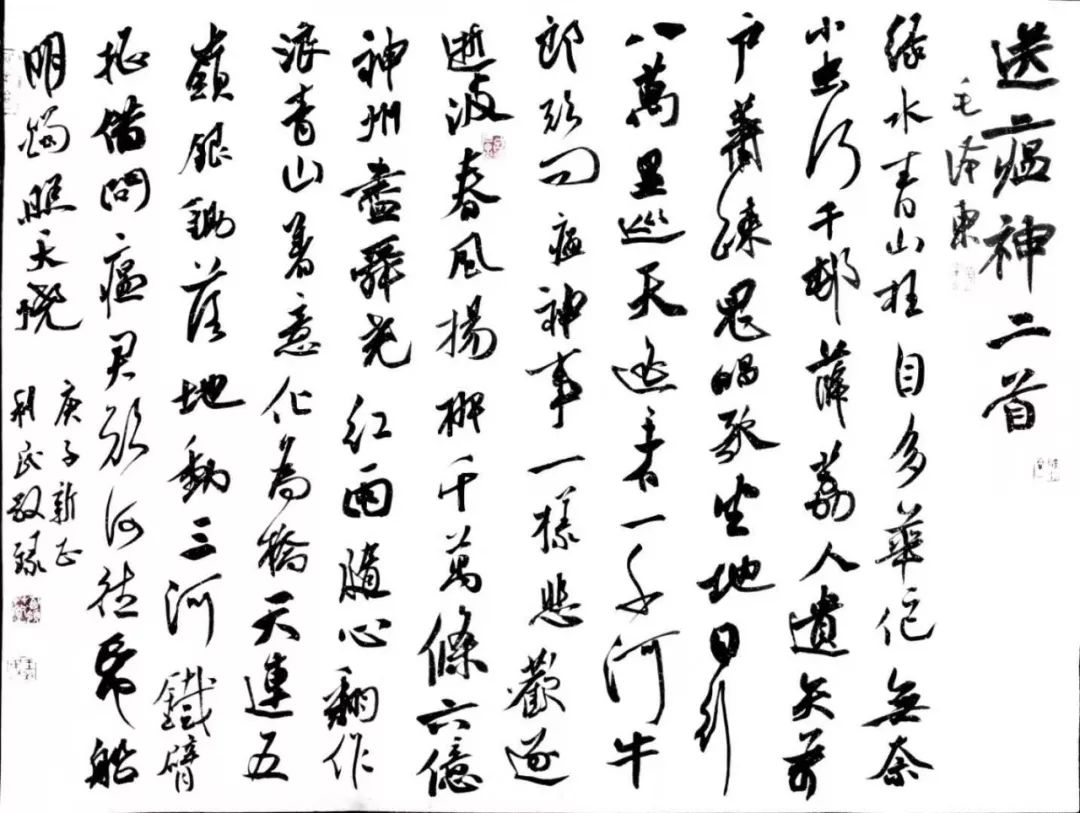 送瘟神二首
毛泽東
绿水青山枉自多華佗無奈
小虫何千邨薜荔人遺矢万
户蕭疎鬼唱歌坐地日行
八萬里巡天遥看一千河牛
郎欲问瘟神事一樣悲歡逐
逝波春風揚柳千萬條六億
神州盡舜尧红雨隨心翻作
浪青山着意化為橋天連五
嶺銀鋤落地動三河鐵臂
摇借問瘟君欲何往帋船
明燭照天燒
庚子新正
利民敬録